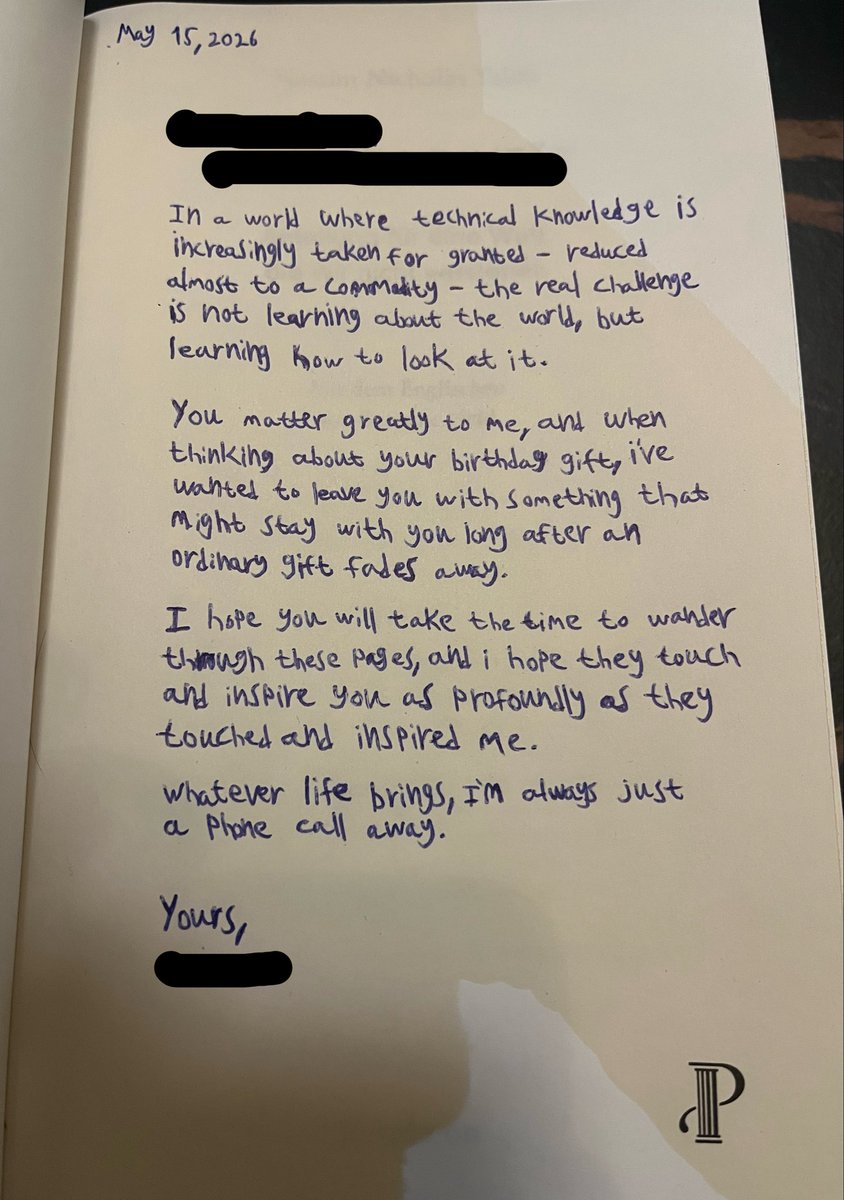 May 15, 2026
In a world where technical knowledge is
increasingly taken for granted – reduced
almost to a commodity – the real challenge
is not learning about the world, but
learning how to look at it.
You matter greatly to me, and when
thinking about your birthday gift, i've
wanted to leave you with something that
might stay with you long after an
ordinary gift fades away.
I hope you will take the time to wander
through these pages, and i hope they touch
and inspire you as profoundly as they
touched and inspired me.
whatever life brings, I'm always just
a phone call away.
Yours,
P